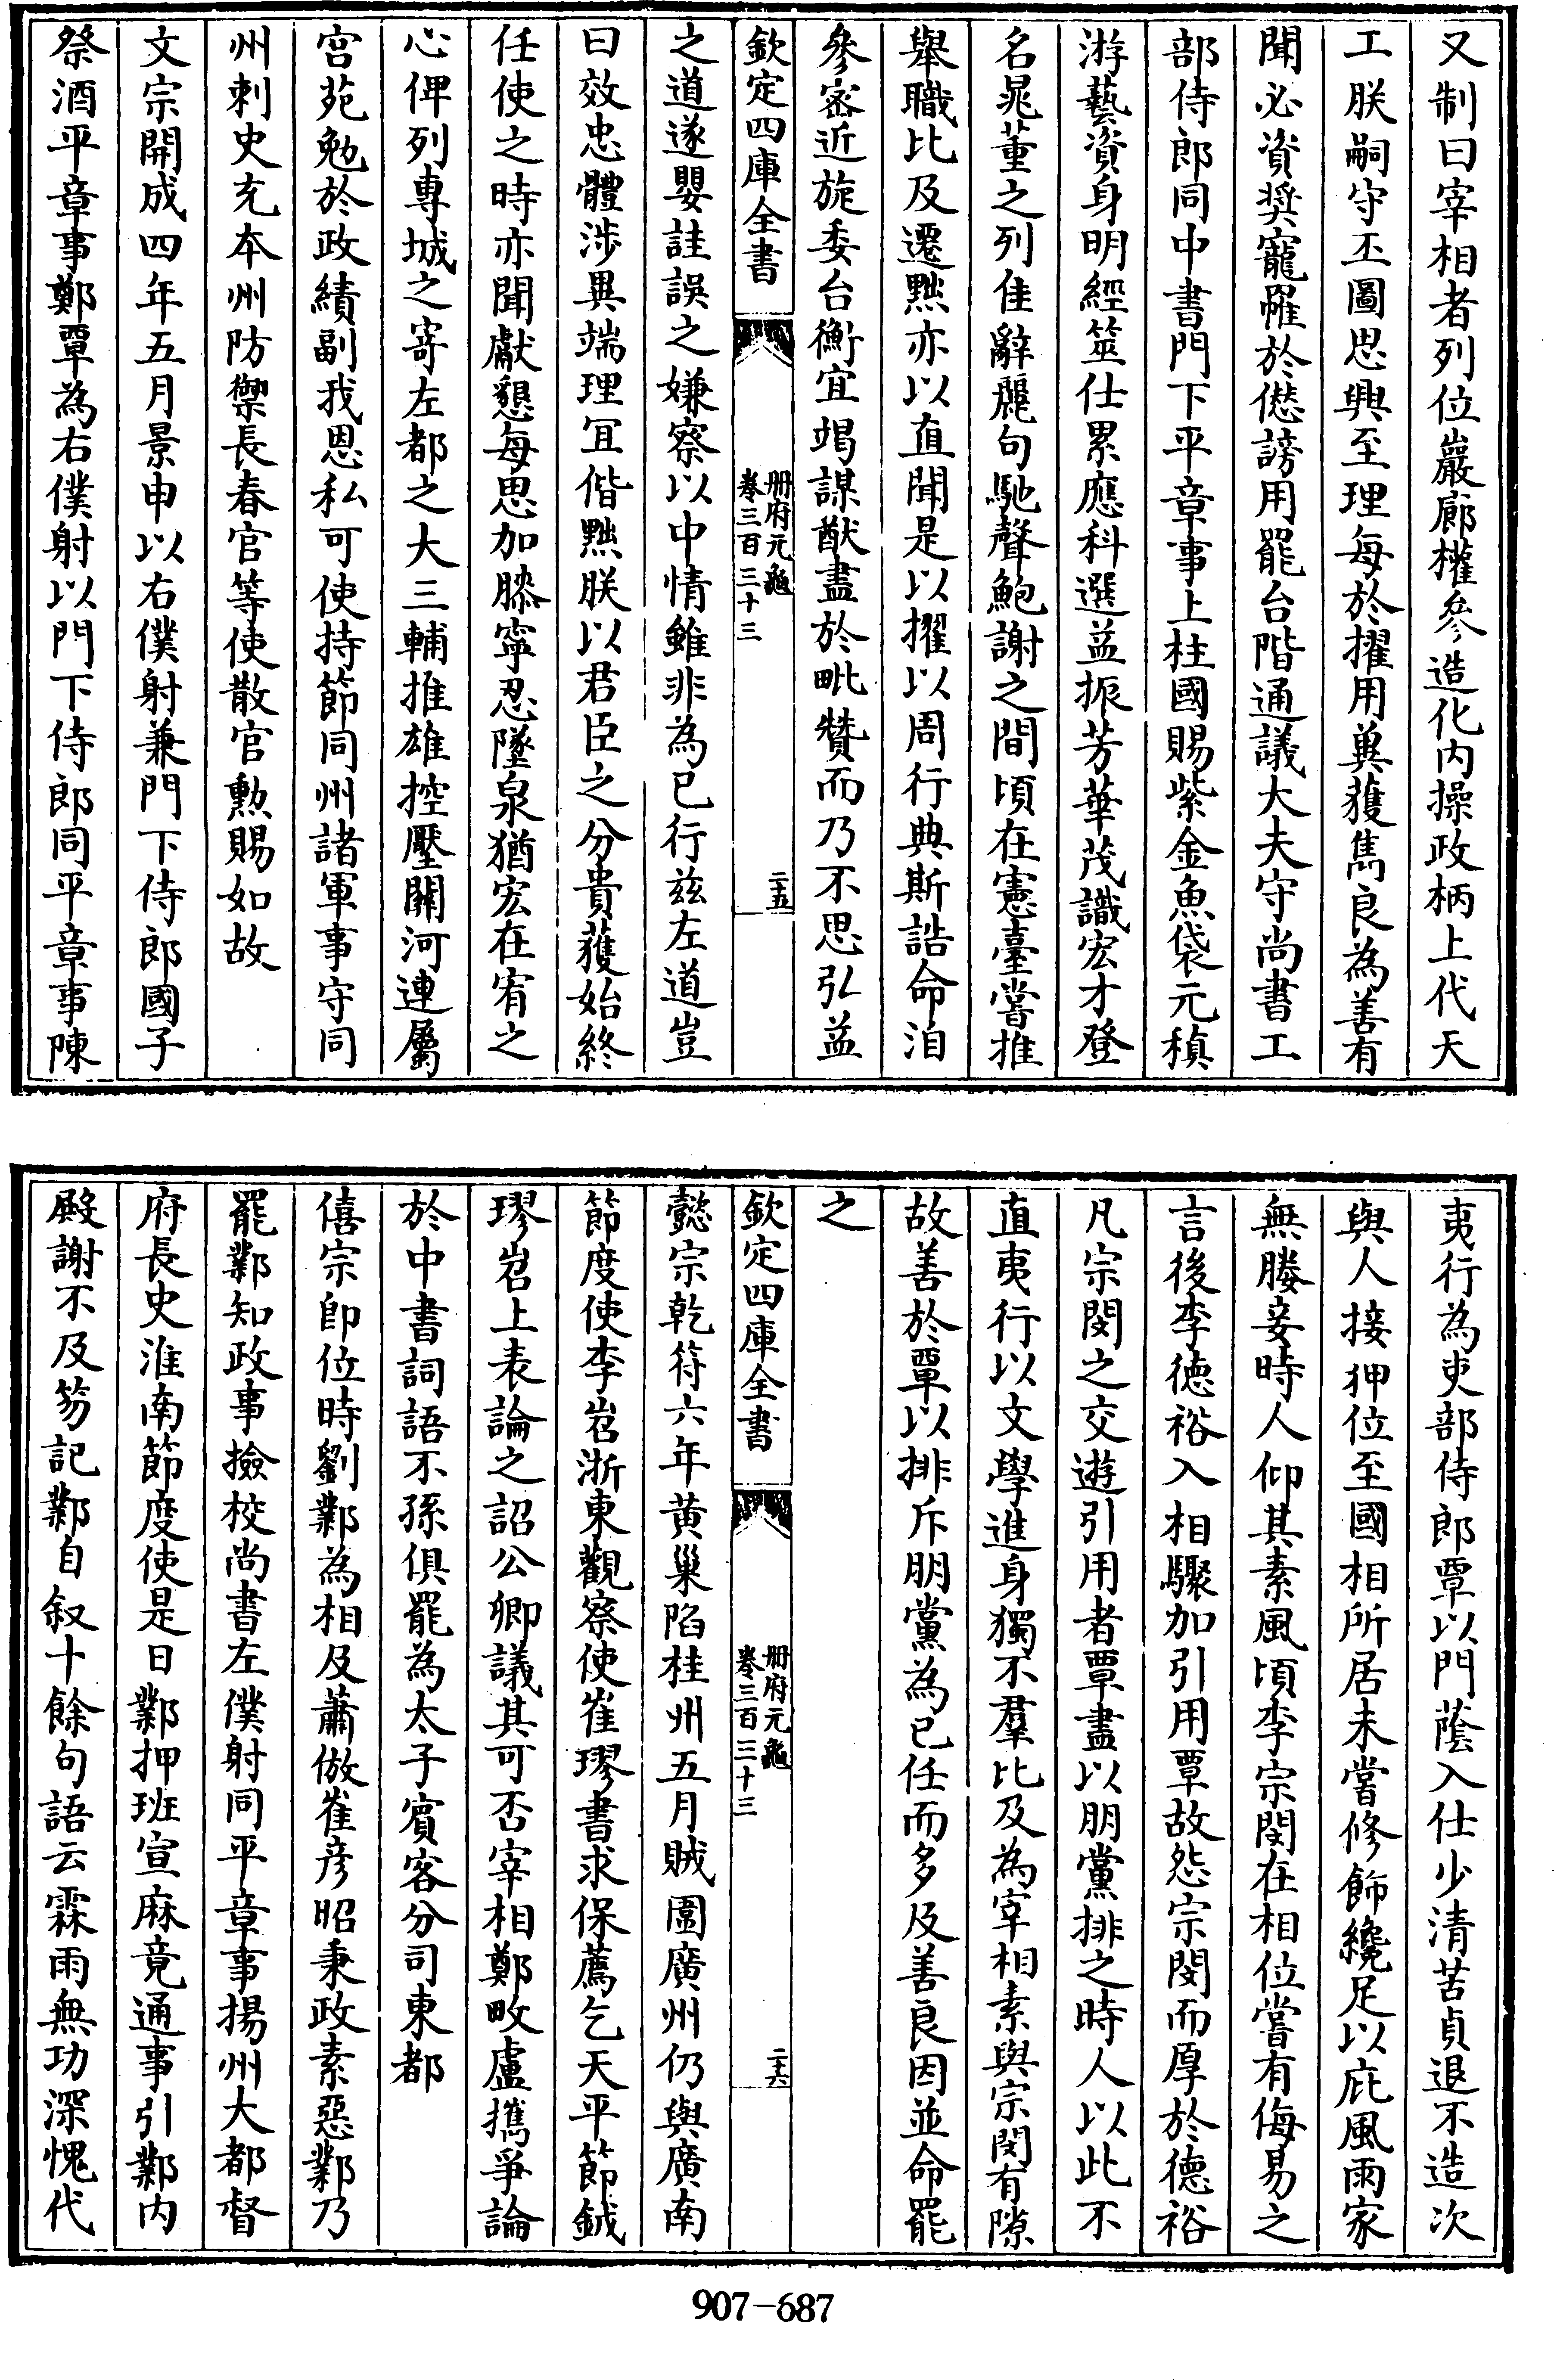 又制曰宰相者列位巖廊權參造化内操政柄上代天
工朕嗣守丕圖思興至理每於擢用冀獲雋良為善有
聞必資奬寵罹於愆謗用罷台階通議大夫守尚書工
部侍郎同中書門下平章事上柱國賜紫金魚袋元稹
游藝資身明經筮仕累應科選益振芳華茂識宏才登
名晁董之列佳辭麗句馳聲鮑謝之間頃在憲臺嘗推
舉職比及遷黜亦以直聞是以擢以周行典斯誥命洎
參密近旋委台衡宜竭謀猷盡於毗贊而乃不思弘益
欽定四庫全書
册府元龜
卷三百三十三
二十五
之道遂嬰詿誤之嫌察以中情雖非為已行兹左道豈
曰效忠體涉異端理宜偕黜朕以君臣之分貴獲始終
任使之時亦聞獻懇每思加膝寧忍墜泉猶宏在宥之
心俾列專城之寄左都之大三輔推雄控壓關河連屬
宫苑勉於政績副我恩私可使持節同州諸軍事守同
州刺史充本州防禦長春官等使散官勲賜如故
文宗開成四年五月景申以右僕射兼門下侍郎國子
祭酒平章事鄭覃為右僕射以門下侍郎同平章事陳
夷行為吏部侍郎覃以門蔭入仕少清苦貞退不造次
與人接狎位至國相所居未嘗修飾纔足以庇風雨家
無媵妾時人仰其素風頃李宗閔在相位嘗有侮易之
言後李德裕入相驟加引用覃故怨宗閔而厚於德裕
凡宗閔之交遊引用者覃盡以朋黨排之時人以此不
直夷行以文學進身獨不羣比及為宰相素與宗閔有隙
故善於覃以排斥朋黨為已任而多及善良因並命罷
之
欽定四庫全書
册府元龜
卷三百三十三
二十六
懿宗乾符六年黄巢陷桂州五月賊圍廣州仍與廣南
節度使李岧浙東觀察使崔璆書求保薦乞天平節鉞
璆岧上表論之詔公卿議其可否宰相鄭畋盧攜爭論
於中書詞語不孫俱罷為太子賓客分司東都
僖宗即位時劉鄴為相及蕭倣崔彦昭秉政素惡鄴乃
罷鄴知政事撿校尚書左僕射同平章事揚州大都督
府長史淮南節度使是日鄴押班宣麻竟通事引鄴内
殿謝不及笏記鄴自叙十餘句語云霖雨無功深愧代
907-687